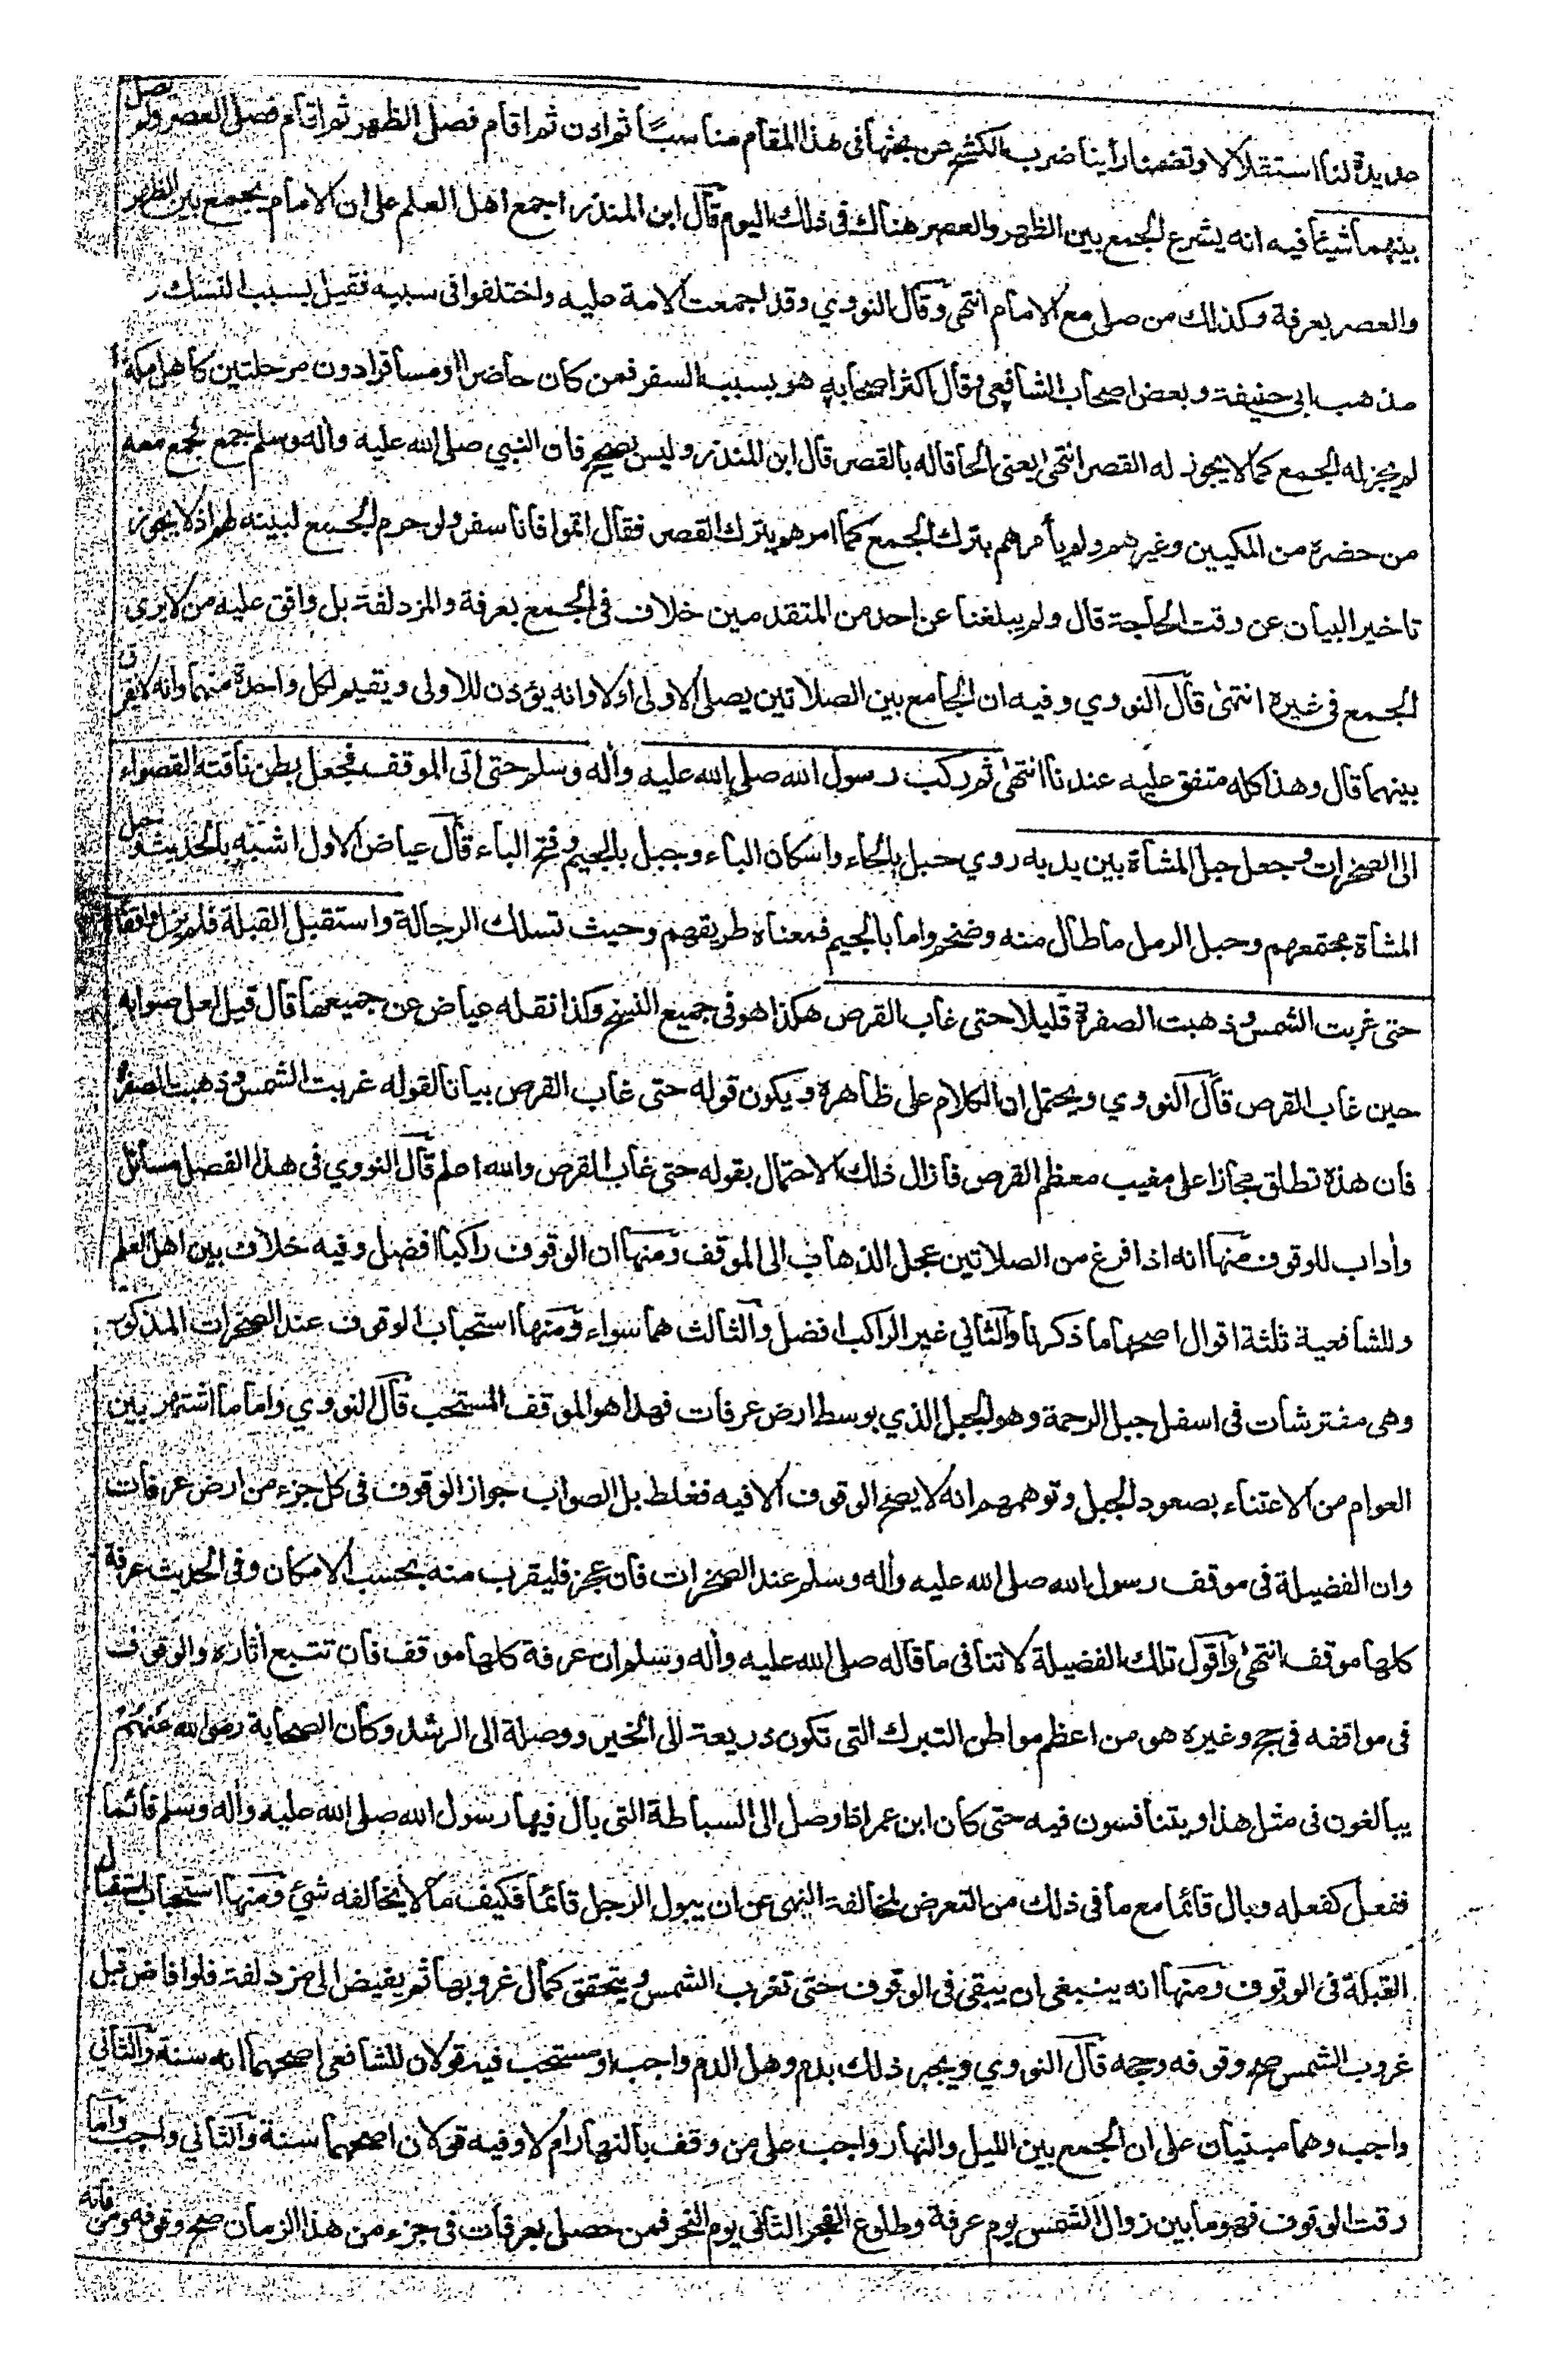 عديدة لنا استقلالا وتضمنا رأينا ضرب الكشح عن بحثها في هذا المقام مناسبًا ثم اذن ثم اقام فصلى الظهر ثم اقام فصلى العصر ولم يصل
بينهما شيئا فيه انه يشرع الجمع بين الظهر والعصر هناك في ذلك اليوم قال ابن المنذر اجمع اهل العلم على ان الامام يجمع بين الظهر
والعصر بعرفة وكذلك من صلى مع الامام انتهى وقال النووي وقد اجمعت الامة عليه واختلفوا في سببه فقيل بسبب النسك و
مذهب ابي حنيفة وبعض اصحاب الشافعي وقال اكثر اصحابه هو بسبب السفر فمن كان حاضرا او مسافرا دون مرحلتين كاهل مكة
لم يجز له الجمع كما لا يجوز له القصر انتهى يعنى الحاقا له بالقصر قال ابن المنذر وليس بصحيح فان النبي صلى الله عليه وأله وسلم جمع فجمع معه
من حضره من المكيين وغيرهم ولم يأمرهم بترك الجمع كما امرهم بترك القصر فقال اتموا فانا سفر ولو حرم الجمع لبينه لهم اذ لا يجوز
تاخير البيان عن وقت الحاجة قال ولم يبلغنا عن احد من المتقدمين خلاف في الجمع بعرفة والمزدلفة بل وافق عليه من لا يرى
الجمع في غيره انتهى قال النووي وفيه ان الجامع بين الصلاتين يصلي الاولى اولا وانه يؤذن للاولى ويقيم لكل واحدة منهما وانه لا يفرق
بينهما قال وهذا كله متفق عليه عندنا انتهى ثم ركب رسول الله صلى الله عليه وأله وسلم حتى اتى الموقف فجعل بطن ناقته القصواء
الى الصخرات وجعل حبل المشاة بين يديه روي حبل بالحاء واسكان الباء وجبل بالجيم وفتح الباء قال عياض الاول اشبه بالحديث وحبل
المشاة مجتمعهم وحبل الرمل ما طال منه وضخم واما بالجيم فمعناه طريقهم وحيث تسلك الرجالة واستقبل القبلة فلم يزل واقفا
حتى غربت الشمس وذهبت الصفرة قليلا حتى غاب القرص هكذا هو في جميع النسخ وكذا نقله عياض عن جميعها قال قيل لعل صوابه
حين غاب القرص قال النووي ويحتمل ان الكلام على ظاهره ويكون قوله حتى غاب القرص بيانا لقوله غربت الشمس وذهبت الصفرة
فان هذه تطلق مجازا على مغيب معظم القرص فازال ذلك الاحتمال بقوله حتى غاب القرص والله اعلم قال النووي في هذا الفصل مسائل
وأداب للوقوف منها انه اذا فرغ من الصلاتين عجل الذهاب الى الموقف ومنها ان الوقوف راكبا افضل وفيه خلاف بين اهل العلم
وللشافعية ثلثة اقوال اصحها ما ذكرنا والثاني غير الراكب افضل والثالث هما سواء ومنها استحباب الوقوف عند الصخرات المذكورة
وهي مفترشات في اسفل جبل الرحمة وهو الجبل الذي بوسط ارض عرفات فهذا هو الموقف المستحب قال النووي واما ما اشتهر بين
العوام من الاعتناء بصعود الجبل وتوهمهم انه لا يصح الوقوف الا فيه فغلط بل الصواب جواز الوقوف في كل جزء من ارض عرفات
وان الفضيلة في موقف رسول الله صلى الله عليه وأله وسلم عند الصخرات فان عجز فليقرب منه بحسب الامكان وفي الحديث عرفة
كلها موقف انتهى واقول تلك الفضيلة لا تنافي ما قاله صلى الله عليه وأله وسلم ان عرفة كلها موقف فان تتبع أثاره والوقوف
في مواقفه في حج وغيره هو من اعظم مواطن التبرك التي تكون ذريعة الى الخير ووصلة الى الرشد وكان الصحابة رضي الله عنهم
يبالغون في مثل هذا ويتنافسون فيه حتى كان ابن عمر اذا وصل الى السباطة التي بال فيها رسول الله صلى الله عليه وأله وسلم قائما
ففعل كفعله وبال قائما مع ما في ذلك من التعرض لمخالفة النهي عن ان يبول الرجل قائما فكيف ما لا يخالفه شيء ومنها استحباب استقبال
القبلة في الوقوف ومنها انه ينبغي ان يبقى في الوقوف حتى تغرب الشمس ويتحقق كمال غروبها ثم يفيض الى مزدلفة فلو افاض قبل
غروب الشمس صح وقوفه وحجه قال النووي ويجبر ذلك بدم وهل الدم واجب او مستحب فيه قولان للشافعي اصحهما انه سنة والثاني
واجب وهما مبنيان على ان الجمع بين الليل والنهار واجب على من وقف بالنهار ام لا وفيه قولان اصحهما سنة والثاني واجب واما
وقت الوقوف فهو ما بين زوال الشمس يوم عرفة وطلوع الفجر الثاني يوم النحر فمن حصل بعرفات في جزء من هذا الزمان صح وقوفه ومن فاته